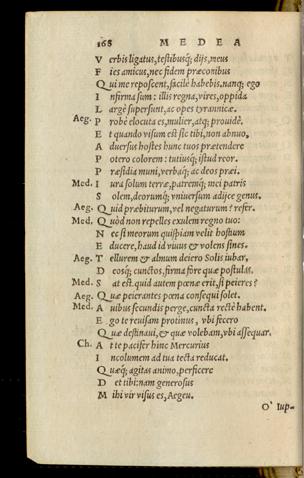 168 MEDEA
V erbis ligatus, testibusq; dijs, meus
F ies amicus, nec fidem præconibus
Q ui me reposcent, facilè habebis. nanq; ego
I nfirma sum: illis regna, vires, oppida
L argè supersunt, ac opes tyrannicæ.
Aeg. P robè elocuta es, mulier, atq; prouidè,
E t quando visum est sic tibi, non abnuo,
A duersus hostes hunc tuos prætendere
P otero colorem: tutiusq; istud reor.
P ræsidia muni, verbaq; ac deos præi.
Med. I ura solum terræ, patremq; mei patris
S olem, deorumq; vniuersum adijce genus.
Aeg. Q uid præbiturum, vel negaturum? refer.
Med. Q uòd non repelles exulem regno tuo:
N ec si meorum quispiam velit hostium
E ducere, haud id viuus & volens sines.
Aeg. T ellurem & almum deiero Solis iubar,
D eosq; cunctos, firma fore quæ postulas.
Med. S at est. quid autem pœnæ erit, si peieres?
Aeg. Q uæ peierantes pœna consequi solet.
Med. A uibus secundis perge, cuncta rectè habent.
E go te reuisam protinus, vbi fecero
Q uæ destinaui, & quæ volebam, vbi assequar.
Ch. A t te pacifer hinc Mercurius
I ncolumem ad tua tecta reducat.
Q uæq; agitas animo, perficere
D et tibi: nam generosus
M ihi vir visus es, Aegeu.
O' Iup-